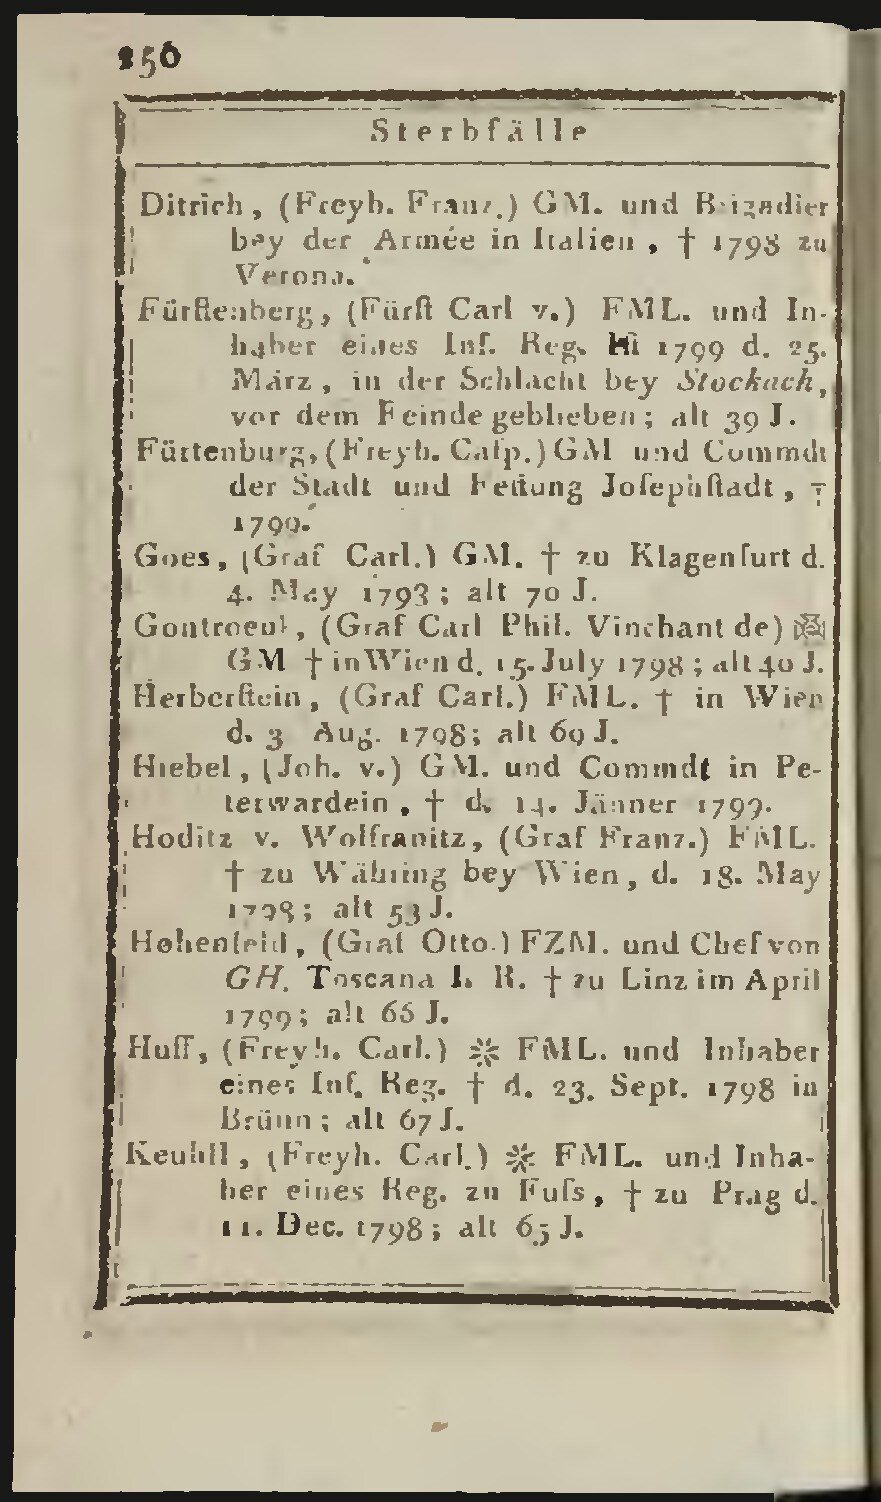 256
Sterbfälle
Ditrich, (Freyh. Franz.) GM. und Brigadier
bey der Armée in Italien, † 1798 zu
Verona.
Fürſtenberg, (Fürſt Carl v.) FML. und In-
haber eines Inf. Reg. 1799 d. 25.
März, in der Schlacht bey Stockach,
vor dem Feinde geblieben; alt 39 J.
Füttenburg, (Freyh. Caſp.) GM und Commdt
der Stadt und Feſtung Joſephſtadt, †
1799.
Goes, (Graf Carl.) GM. † zu Klagenfurt d.
4. May 1798; alt 70 J.
Gontroeul, (Graf Carl Phil. Vinchant de)
GM † in Wien d. 15. July 1798; alt 40 J.
Herberſtein, (Graf Carl.) FML. † in Wien
d. 3 Aug. 1798; alt 69 J.
Hiebel, (Joh. v.) GM. und Commdt in Pe-
terwardein, † d. 14. Jänner 1799.
Hoditz v. Wolfranitz, (Graf Franz.) FML.
† zu Währing bey Wien, d. 18. May
1798; alt 53 J.
Hohenfeld, (Graf Otto.) FZM. und Chef von
GH. Toscana I. R. † zu Linz im April
1799; alt 66 J.
Huff, (Freyh. Carl.) ⁂ FML. und Inhaber
eines Inf. Reg. † d. 23. Sept. 1798 in
Brünn; alt 67 J.
Keuhll, (Freyh. Carl.) ⁂ FML. und Inha-
ber eines Reg. zu Fuſs, † zu Prag d.
11. Dec. 1798; alt 65 J.